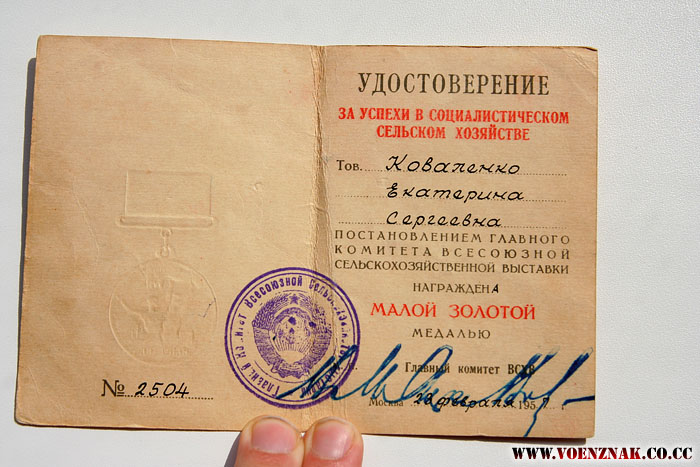 № 2504
Главный Комитет Всесоюзной
УДОСТОВЕРЕНИЕ
ЗА УСПЕХИ В СОЦИАЛИСТИЧЕСКОМ
СЕЛЬСКОМ ХОЗЯЙСТВЕ
Тов. Коваленко
Екатерина
Сергеевна
ПОСТАНОВЛЕНИЕМ ГЛАВНОГО
КОМИТЕТА ВСЕСОЮЗНОЙ
СЕЛЬСКОХОЗЯЙСТВЕННОЙ ВЫСТАВКИ
НАГРАЖДЕНА
МАЛОЙ ЗОЛОТОЙ
МЕДАЛЬЮ
Главный комитет ВСХВ
Москва февраля 195
WWW.VOENZNAK.CO.CC